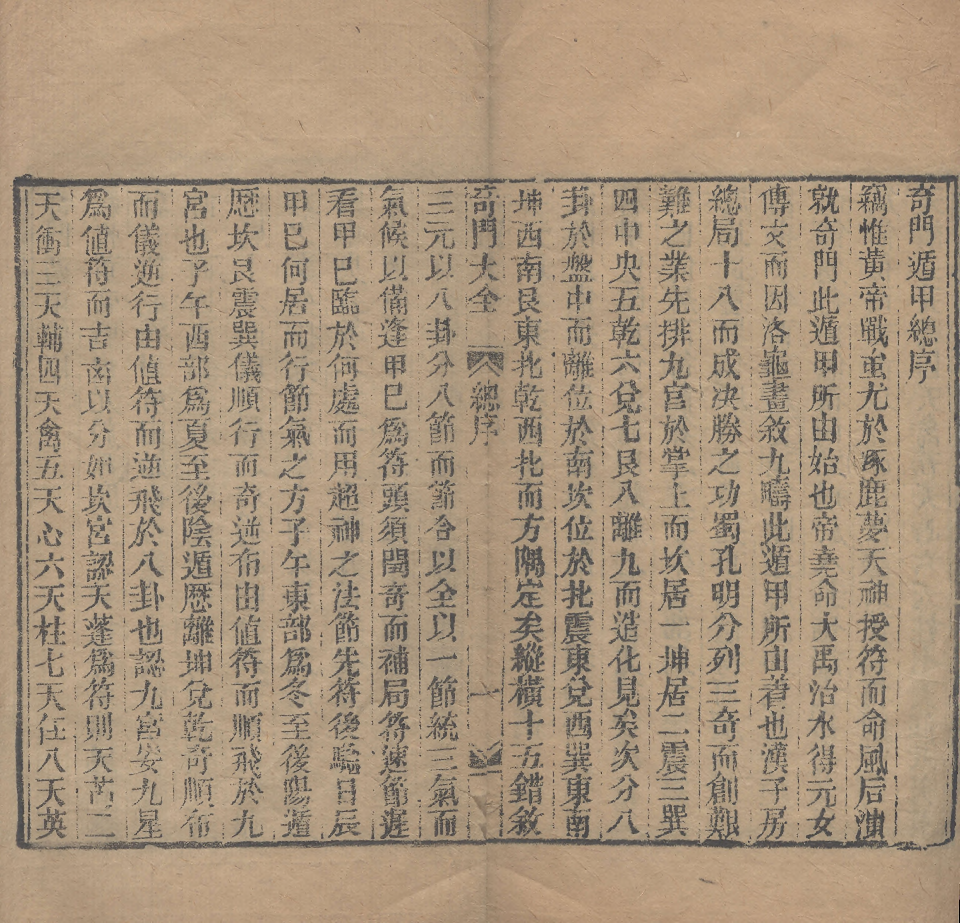 奇門遁甲總序
竊惟黃帝戰蚩尤於涿鹿夢天神授符而命風后演
就奇門此遁甲所由始也帝堯命大禹治水得元女
傳文而因洛龜畫敘九疇此遁甲所由著也漢子房
總局十八而成决勝之功蜀孔明分列三奇而創艱
難之業先排九宮於掌上而坎居一坤居二震三巽
四中央五乾六兌七艮八離九而造化見矣次分八
卦於盤中而離位於南坎位於北震東兌西巽東南
坤西南艮東北乾西北而方隅定矣縱橫十五錯敘
奇門大全 總序 一
三元以八卦分八節而節合以全以一節統三氣而
氣候以備逢甲巳爲符頭須閏奇而補局符速節遲
看甲巳臨於何處而用超神之法節先符後驗日辰
甲巳何居而行節氣之方子午東部爲冬至後陽遁
歷坎艮震巽儀順行而奇逆布由值符而順飛於九
宮也子午西部爲夏至後陰遁歷離坤兌乾奇順布
而儀逆行由值符而逆飛於八卦也認九宮安九星
爲値符而吉凶以分如坎宮認天蓬爲符則天芮二
天衝三天輔四天禽五天心六天柱七天任八天英